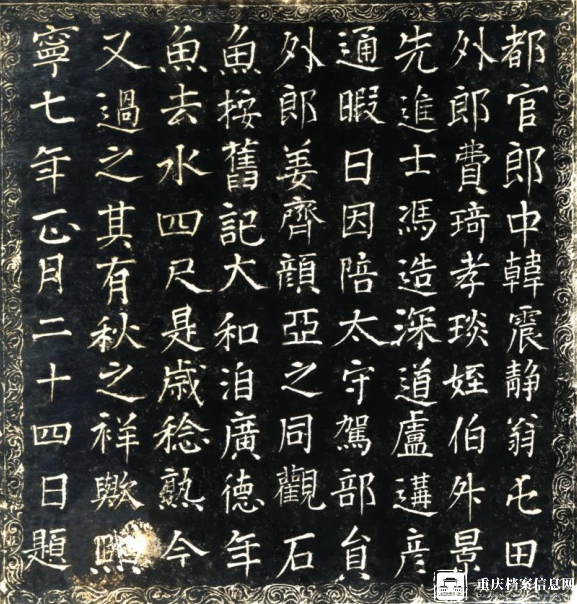 都官郎中韓震静翁屯田
外郎費琦孝琰姪伯升景
先進士馮造深道盧遘彦
通暇日因陪太守駕部員
外郎姜齊顔亞之同觀石
魚桉舊記大和洎廣德年
魚去水四尺是歲稔熟今
又過之其有秋之祥歟熙
寧七年正月二十四日題
重庆档案信息网